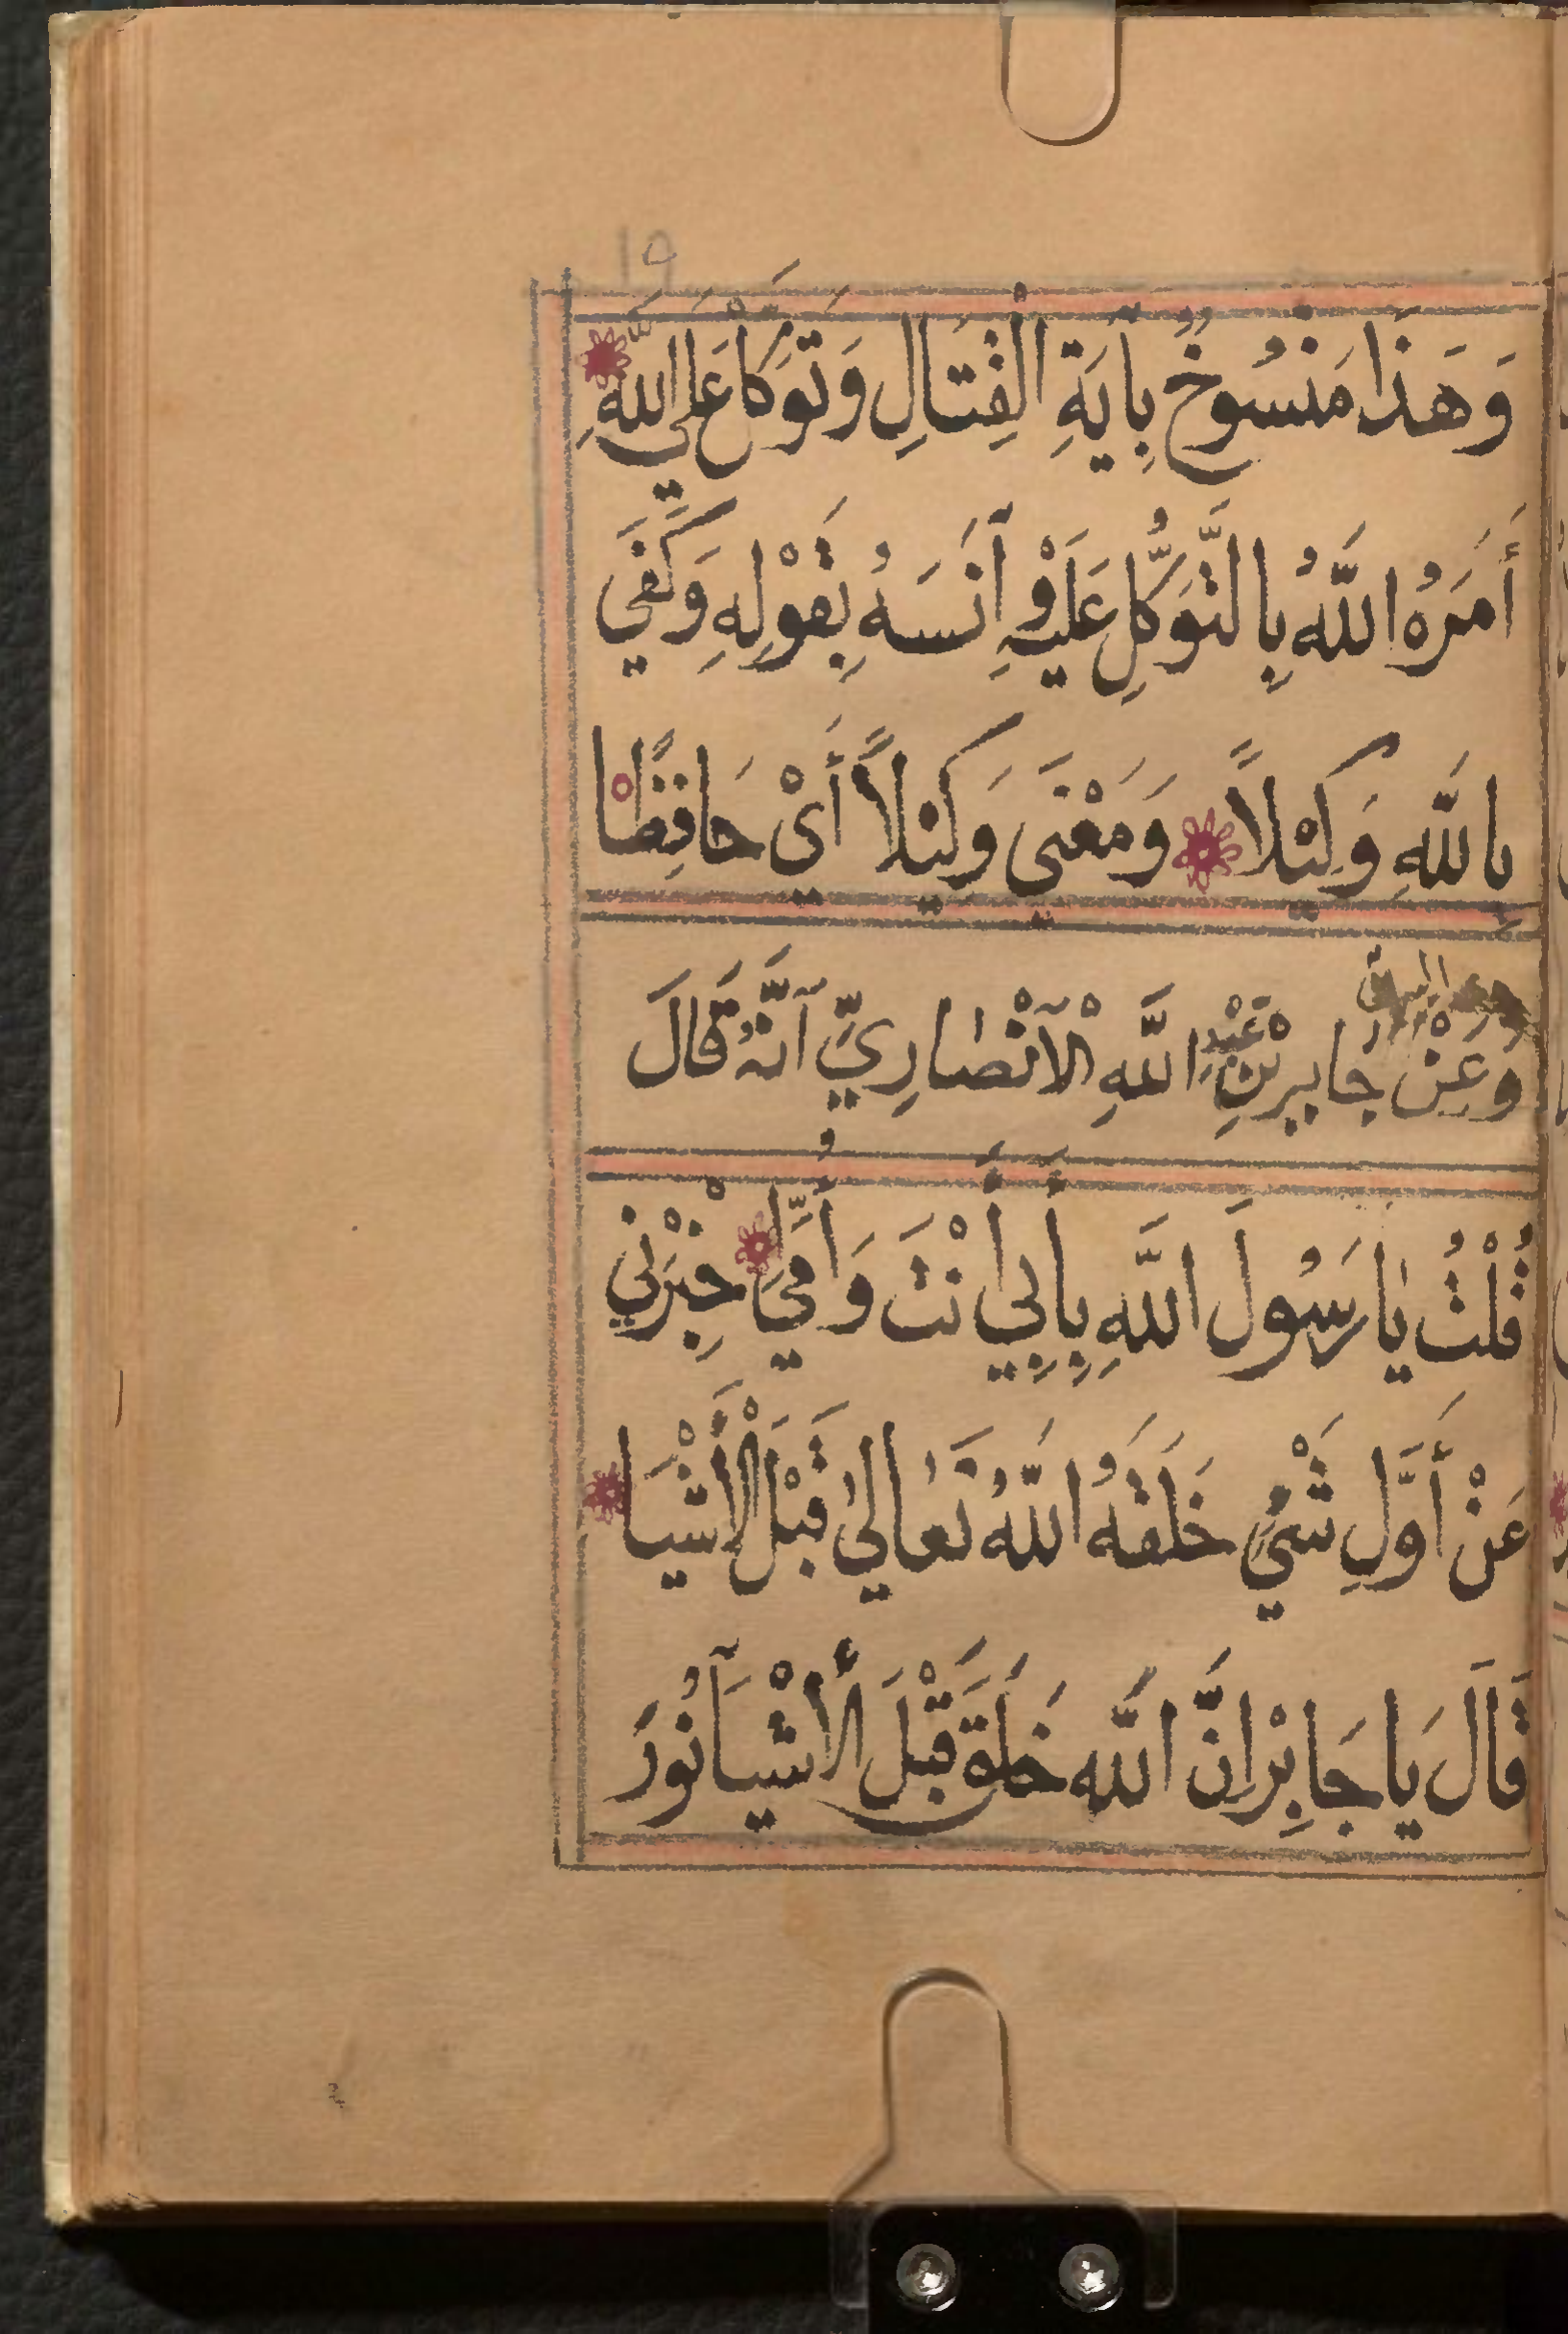 19
وَهَذَا مَنْسُوخٌ بِأَيَةِ الْقِتَالِ وَتَوَكَّلْ عَلَي اللَّهِ
أَمَرَهُ اللَّهُ بِالتَّوَكُّلِ عَلَيْهِ وَآنَسَهُ بِقَوْلِهِ وَكَفَي
بِاللَّهِ وَكِيْلاً وَمَعْنَى وَكِيْلاً أَيْ حَافِظًا
وَعَنْ جَابِرِ بْنِ عَبْدِ اللَّهِ الْآنْصَارِيِّ آنَّهُ قَالَ
قُلْتُ يَا رَسُولَ اللَّهِ بِأَبِي أَنْتَ وَأُمِّي خْبِرْنِي
عَنْ أَوَّلِ شَيْءٍ خَلَقَهُ اللَّهُ تَعَالَي قَبْلَ الْأَشْيَا
قَالَ يَا جَابِرْ اِنَّ اللَّه خَلَقَ قَبْلَ الْأَشْيَآ نُورَ